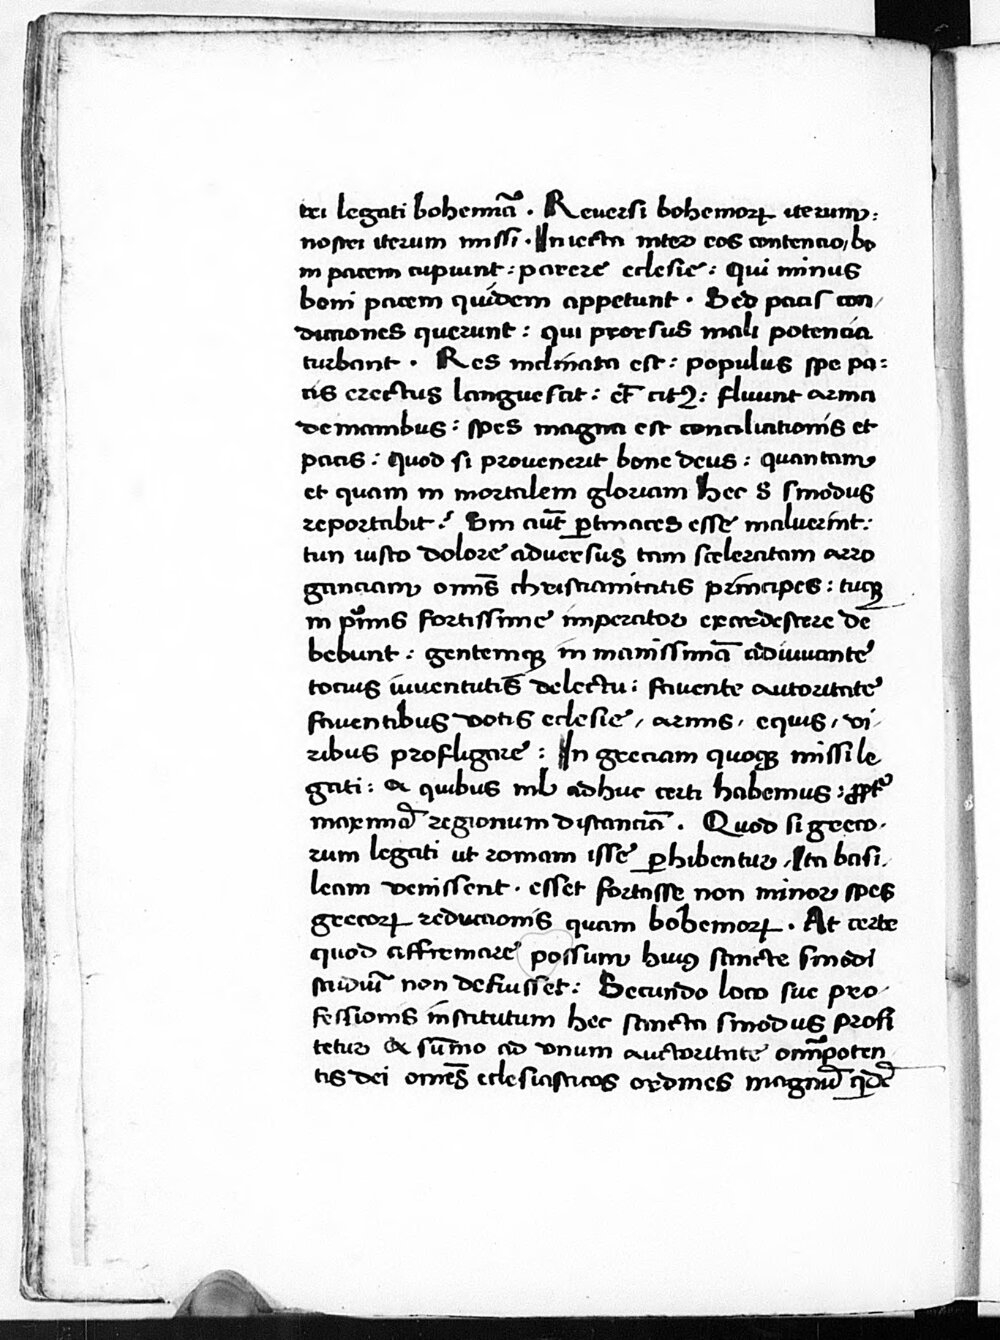 tri legati bohemiā. Reuersi bohemoꝝ iterum:
nostri iterum missi. Iniecta inter eos contencio, bo
ni pacem cupiunt: parere eclesie: qui minus
boni pacem quidem appetunt. Sed pacis con,
diciones querunt: qui prorsus mali potencia
turbant. Res inclinata est: populus spe pa:
cis erectus languescit: et̄ citꝫ: fluunt arma
de manibus: spes magna est conciliationis et
pacis: quod si prouenerit bone deus: quantam
et quam in mortalem gloriam hec S sinodus
reportabit? Sin aut̄ ꝑtinaces esse maluerint:
tun iusto dolore aduersus tam sceleratam arro
ganciam omēs christianitatis principes: tuqꝫ
in pⁱmis fortissime imperator excedescere de
bebunt: gentemqꝫ in manissimā adiuuante
tocius iuuentutis delectu: fauente autoritate
fauentibus uotis eclesie, armis, equis, ui,
ribus profligare: In greciam quoqꝫ missi le
gati: & quibus nil adhuc certi habemus: ꝓpt̄
maximā regionum distanciā. Quod si greco,
rum legati ut romam isse ꝑhibentur, Ita basi,
leam uenissent. esset fortasse non minor spes
grecoꝝ reductionis quam bohemoꝝ. At certe
quod affirmare possum huiꝰ sancte sinodi
studiū non defuisset: Secundo loco sue pro,
fessionis institutum hec sancta sinodus profi
tetur & sūmo ad unum auctoritate omīpoten
tis dei omēs eclesiasticos ordines magnū qdē